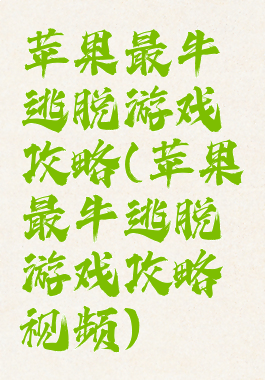 苹果最牛
逃脱游戏
攻略(苹果
最牛逃脱
游戏攻略
视频)